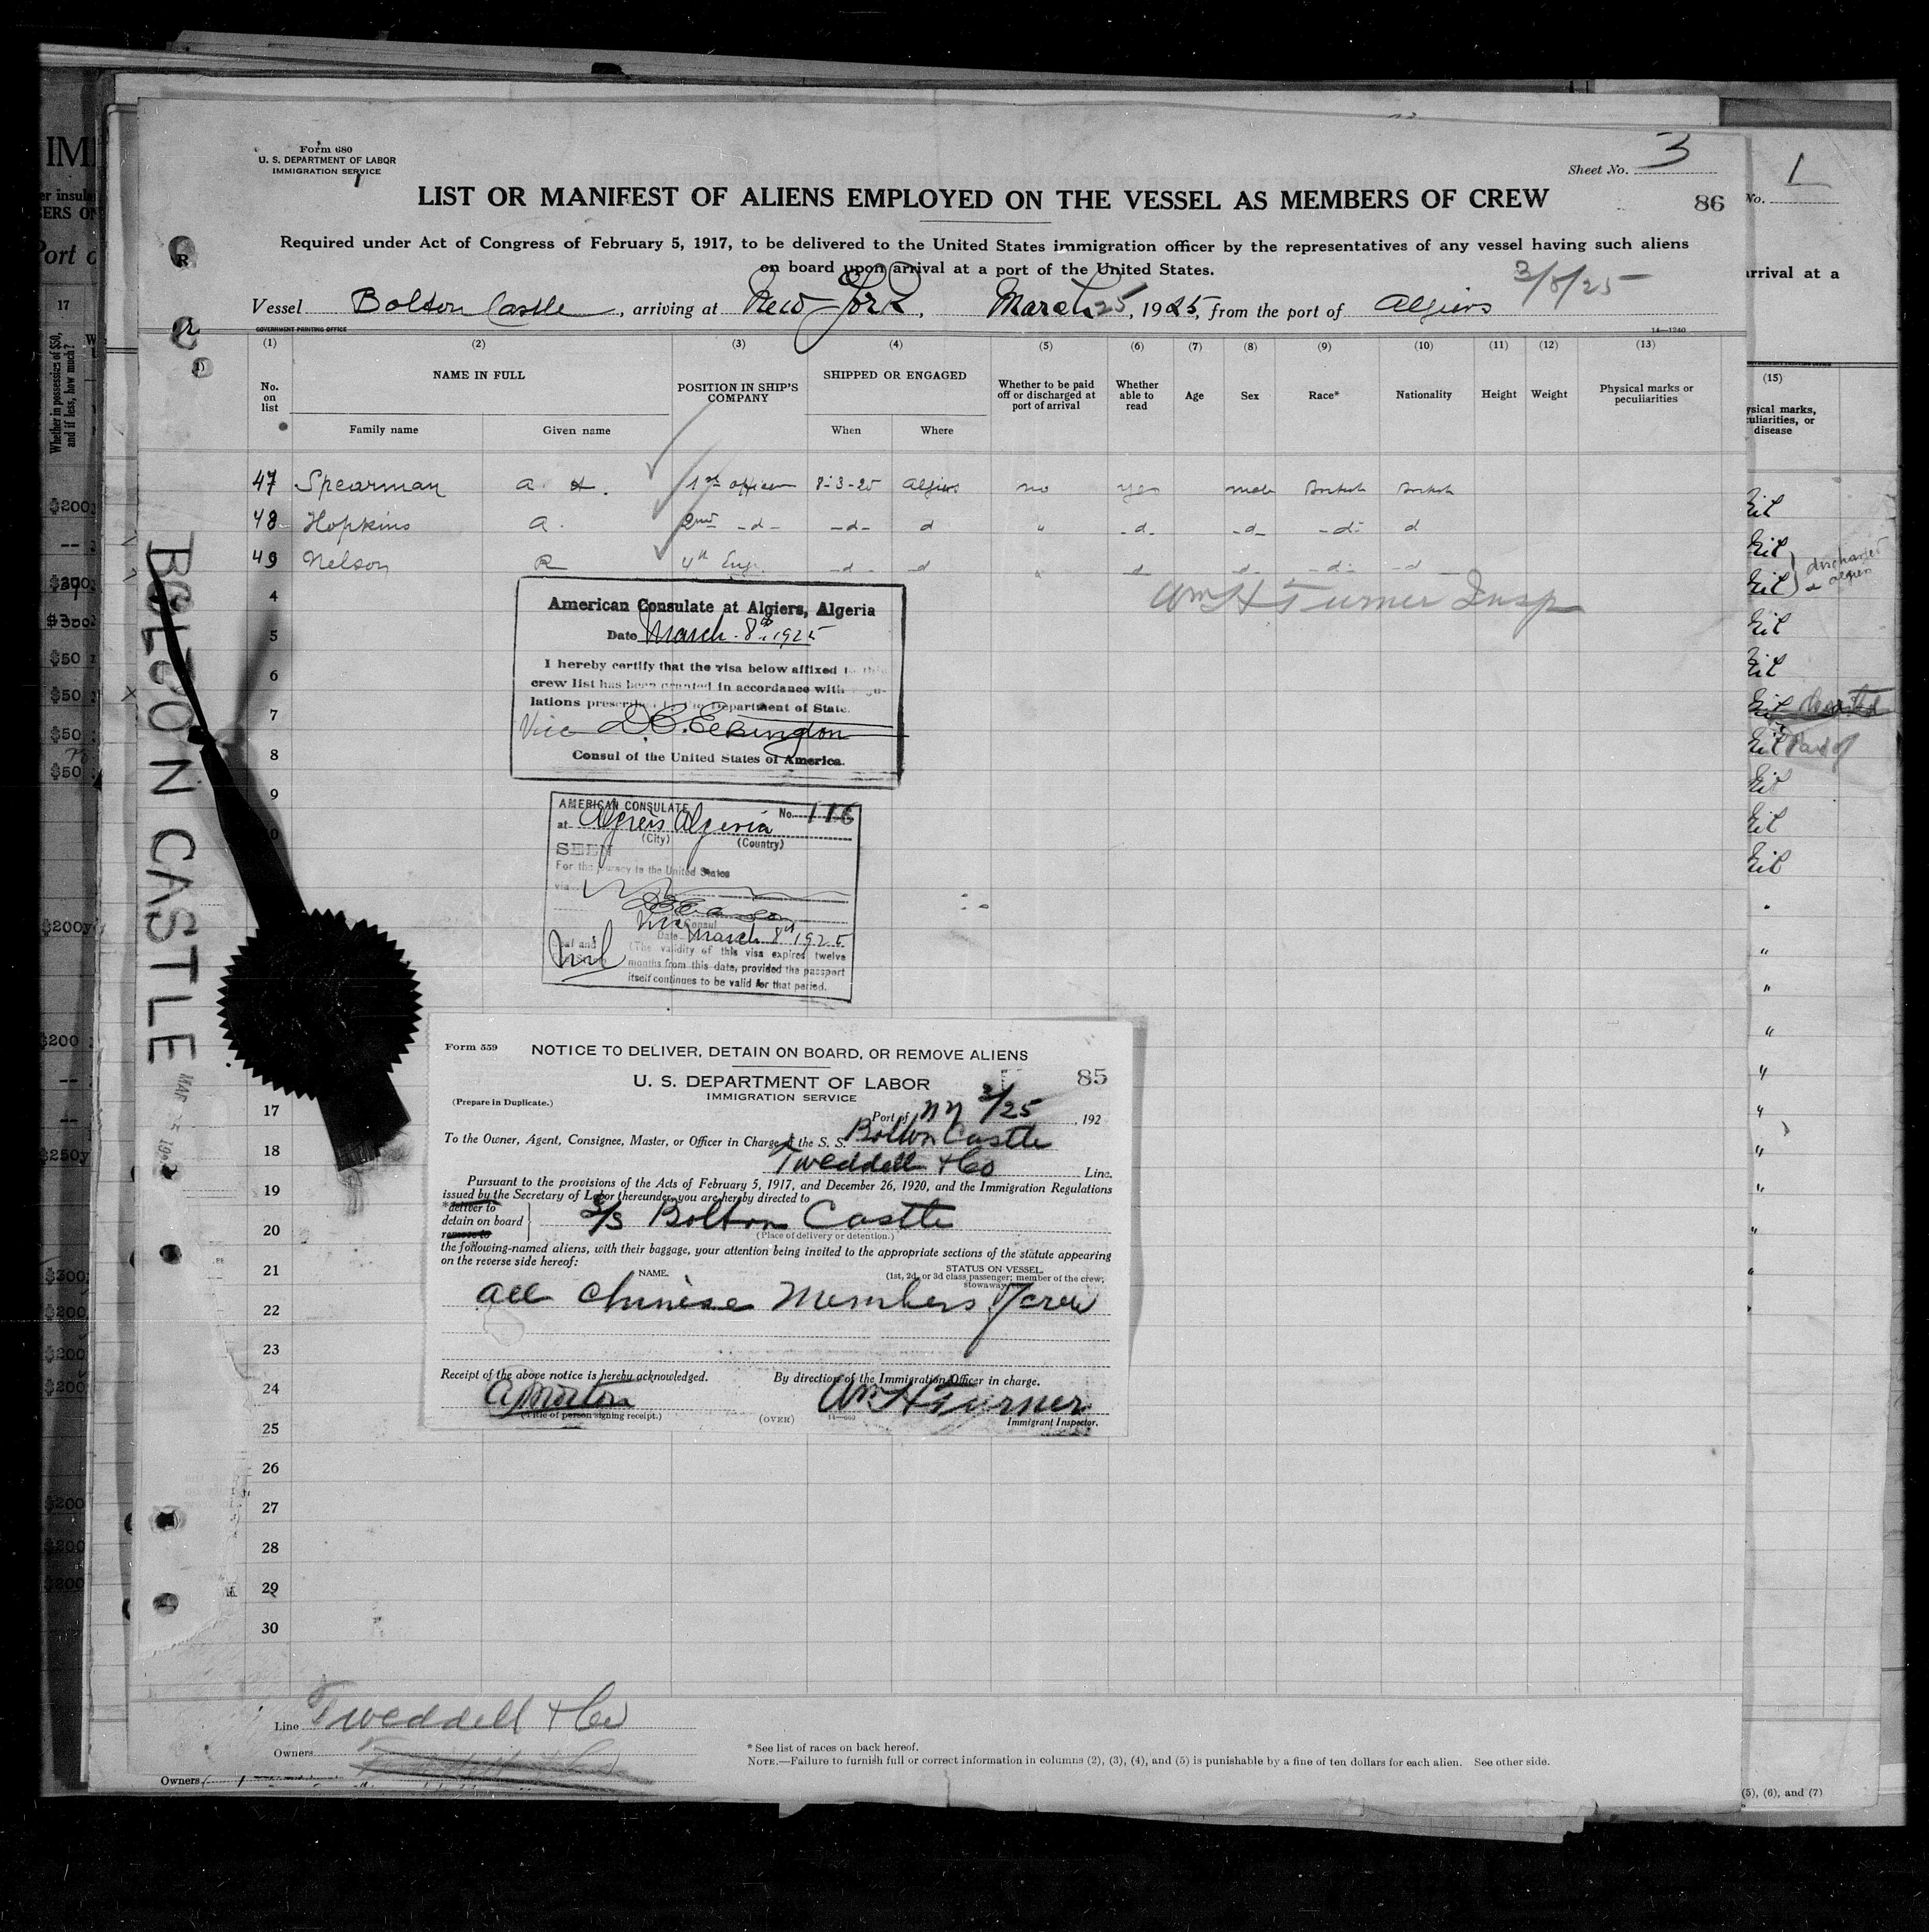 Form 680
U. S. DEPARTMENT OF LABOR
IMMIGRATION SERVICE
Sheet No. 3
LIST OR MANIFEST OF ALIENS EMPLOYED ON THE VESSEL AS MEMBERS OF CREW
86
Required under Act of Congress of February 5, 1917, to be delivered to the United States immigration officer by the representatives of any vessel having such aliens
on board upon arrival at a port of the United States.
3/8/25
Vessel Bolton Castle, arriving at New York, March 25, 1925, from the port of Algiers
GOVERNMENT PRINTING OFFICE
14—1240
(1) (2) (3) (4) (5) (6) (7) (8) (9) (10) (11) (12) (13)
No. on list
NAME IN FULL
Family name Given name
POSITION IN SHIP'S COMPANY
SHIPPED OR ENGAGED
When Where
Whether to be paid off or discharged at port of arrival
Whether able to read
Age Sex Race* Nationality Height Weight
Physical marks or peculiarities
47 Spearman A. H. 1st officer 8-3-25 Algiers no yes male British British
48 Hopkins A. 2nd -d- -d- d " -d- -d- -d- d
49 Nelson R 4th Eng. -d- -d " -d -d -d- -d
Wm H Turner Insp
4
5
6
7
8
9
American Consulate at Algiers, Algeria
Date March 8th 1925
I hereby certify that the visa below affixed to this
crew list has been granted in accordance with regu-
lations prescribed by the Department of State.
Vice D.C. Elkington
Consul of the United States of America.
AMERICAN CONSULATE No. 116
at Algiers Algeria
(City) (Country)
SEEN
For the journey to the United States
via
Vice Consul
Date March 8th 1925
(The validity of this visa expires twelve
months from this date, provided the passport
itself continues to be valid for that period.
Seal and
nil
BOLTON CASTLE
Form 559
NOTICE TO DELIVER, DETAIN ON BOARD, OR REMOVE ALIENS
U. S. DEPARTMENT OF LABOR
85
IMMIGRATION SERVICE
(Prepare in Duplicate.)
Port of NY 3/25, 192
To the Owner, Agent, Consignee, Master, or Officer in Charge of the S. S. Bolton Castle
Tweddell & Co Line.
Pursuant to the provisions of the Acts of February 5, 1917, and December 26, 1920, and the Immigration Regulations
issued by the Secretary of Labor thereunder, you are hereby directed to
*deliver to
detain on board
remove to
S/S Bolton Castle
(Place of delivery or detention.)
the following-named aliens, with their baggage, your attention being invited to the appropriate sections of the statute appearing
on the reverse side hereof:
NAME.
STATUS ON VESSEL.
(1st, 2d, or 3d class passenger; member of the crew;
stowaway
all Chinese Members of crew
Receipt of the above notice is hereby acknowledged.
By direction of the Immigration Officer in charge,
A Morton
Wm H Turner
(Title of person signing receipt.)
(OVER)
14—660
Immigrant Inspector.
17
18
19
20
21
22
23
24
25
26
27
28
29
30
Line Tweddell & Co
Owners
Owners
* See list of races on back hereof.
NOTE.—Failure to furnish full or correct information in columns (2), (3), (4), and (5) is punishable by a fine of ten dollars for each alien. See other side.
No. 1
arrival at a
(15)
disease
Nil
Nil
Nil
discharged
Algiers
Nil
Nil
Nil
Nil
Nil
Nil
Nil
(5), (6), and (7)
17
Whether in possession of $50,
and if less, how much?
$200
$50
$50
$50
$50
$200
$200
$250
$300
$200
$200
$200
$200
$200
$200